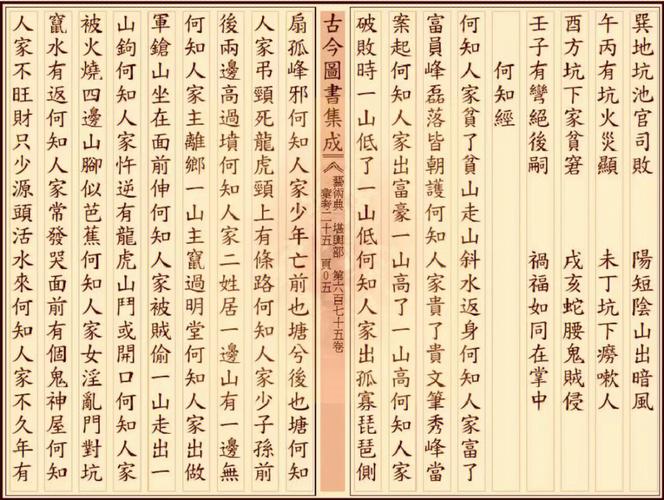 巽地坑池官司敗　陽短陰山出暗風
午丙有坑火災顯　未丁坑下癆嗽人
酉方坑下家貧窘　戌亥蛇腰鬼賊侵
壬子有彎絕後嗣　禍福如同在掌中
何知經
何知人家貧了貧山走山斜水返身何知人家富了
富員峰磊落皆朝護何知人家貴了貴文筆秀峰當
案起何知人家出富豪一山高了一山高何知人家
破敗時一山低了一山低何知人家出孤寡琵琶側
古今圖書集成》《
藝術典　堪輿部　第六百七十五卷
彙考二十五　頁0五
扇孤峰邪何知人家少年亡前也塘兮後也塘何知
人家弔頸死龍虎頸上有條路何知人家少子孫前
後兩邊高過墳何知人家二姓居一邊山有一邊無
何知人家主離鄉一山主竄過明堂何知人家出做
軍鎗山坐在面前伸何知人家被賊偷一山走出一
山鉤何知人家忤逆有龍虎山鬥或開口何知人家
被火燒四邊山腳似芭蕉何知人家女淫亂門對坑
竄水有返何知人家常發哭面前有個鬼神屋何知
人家不旺財只少源頭活水來何知人家不久年有